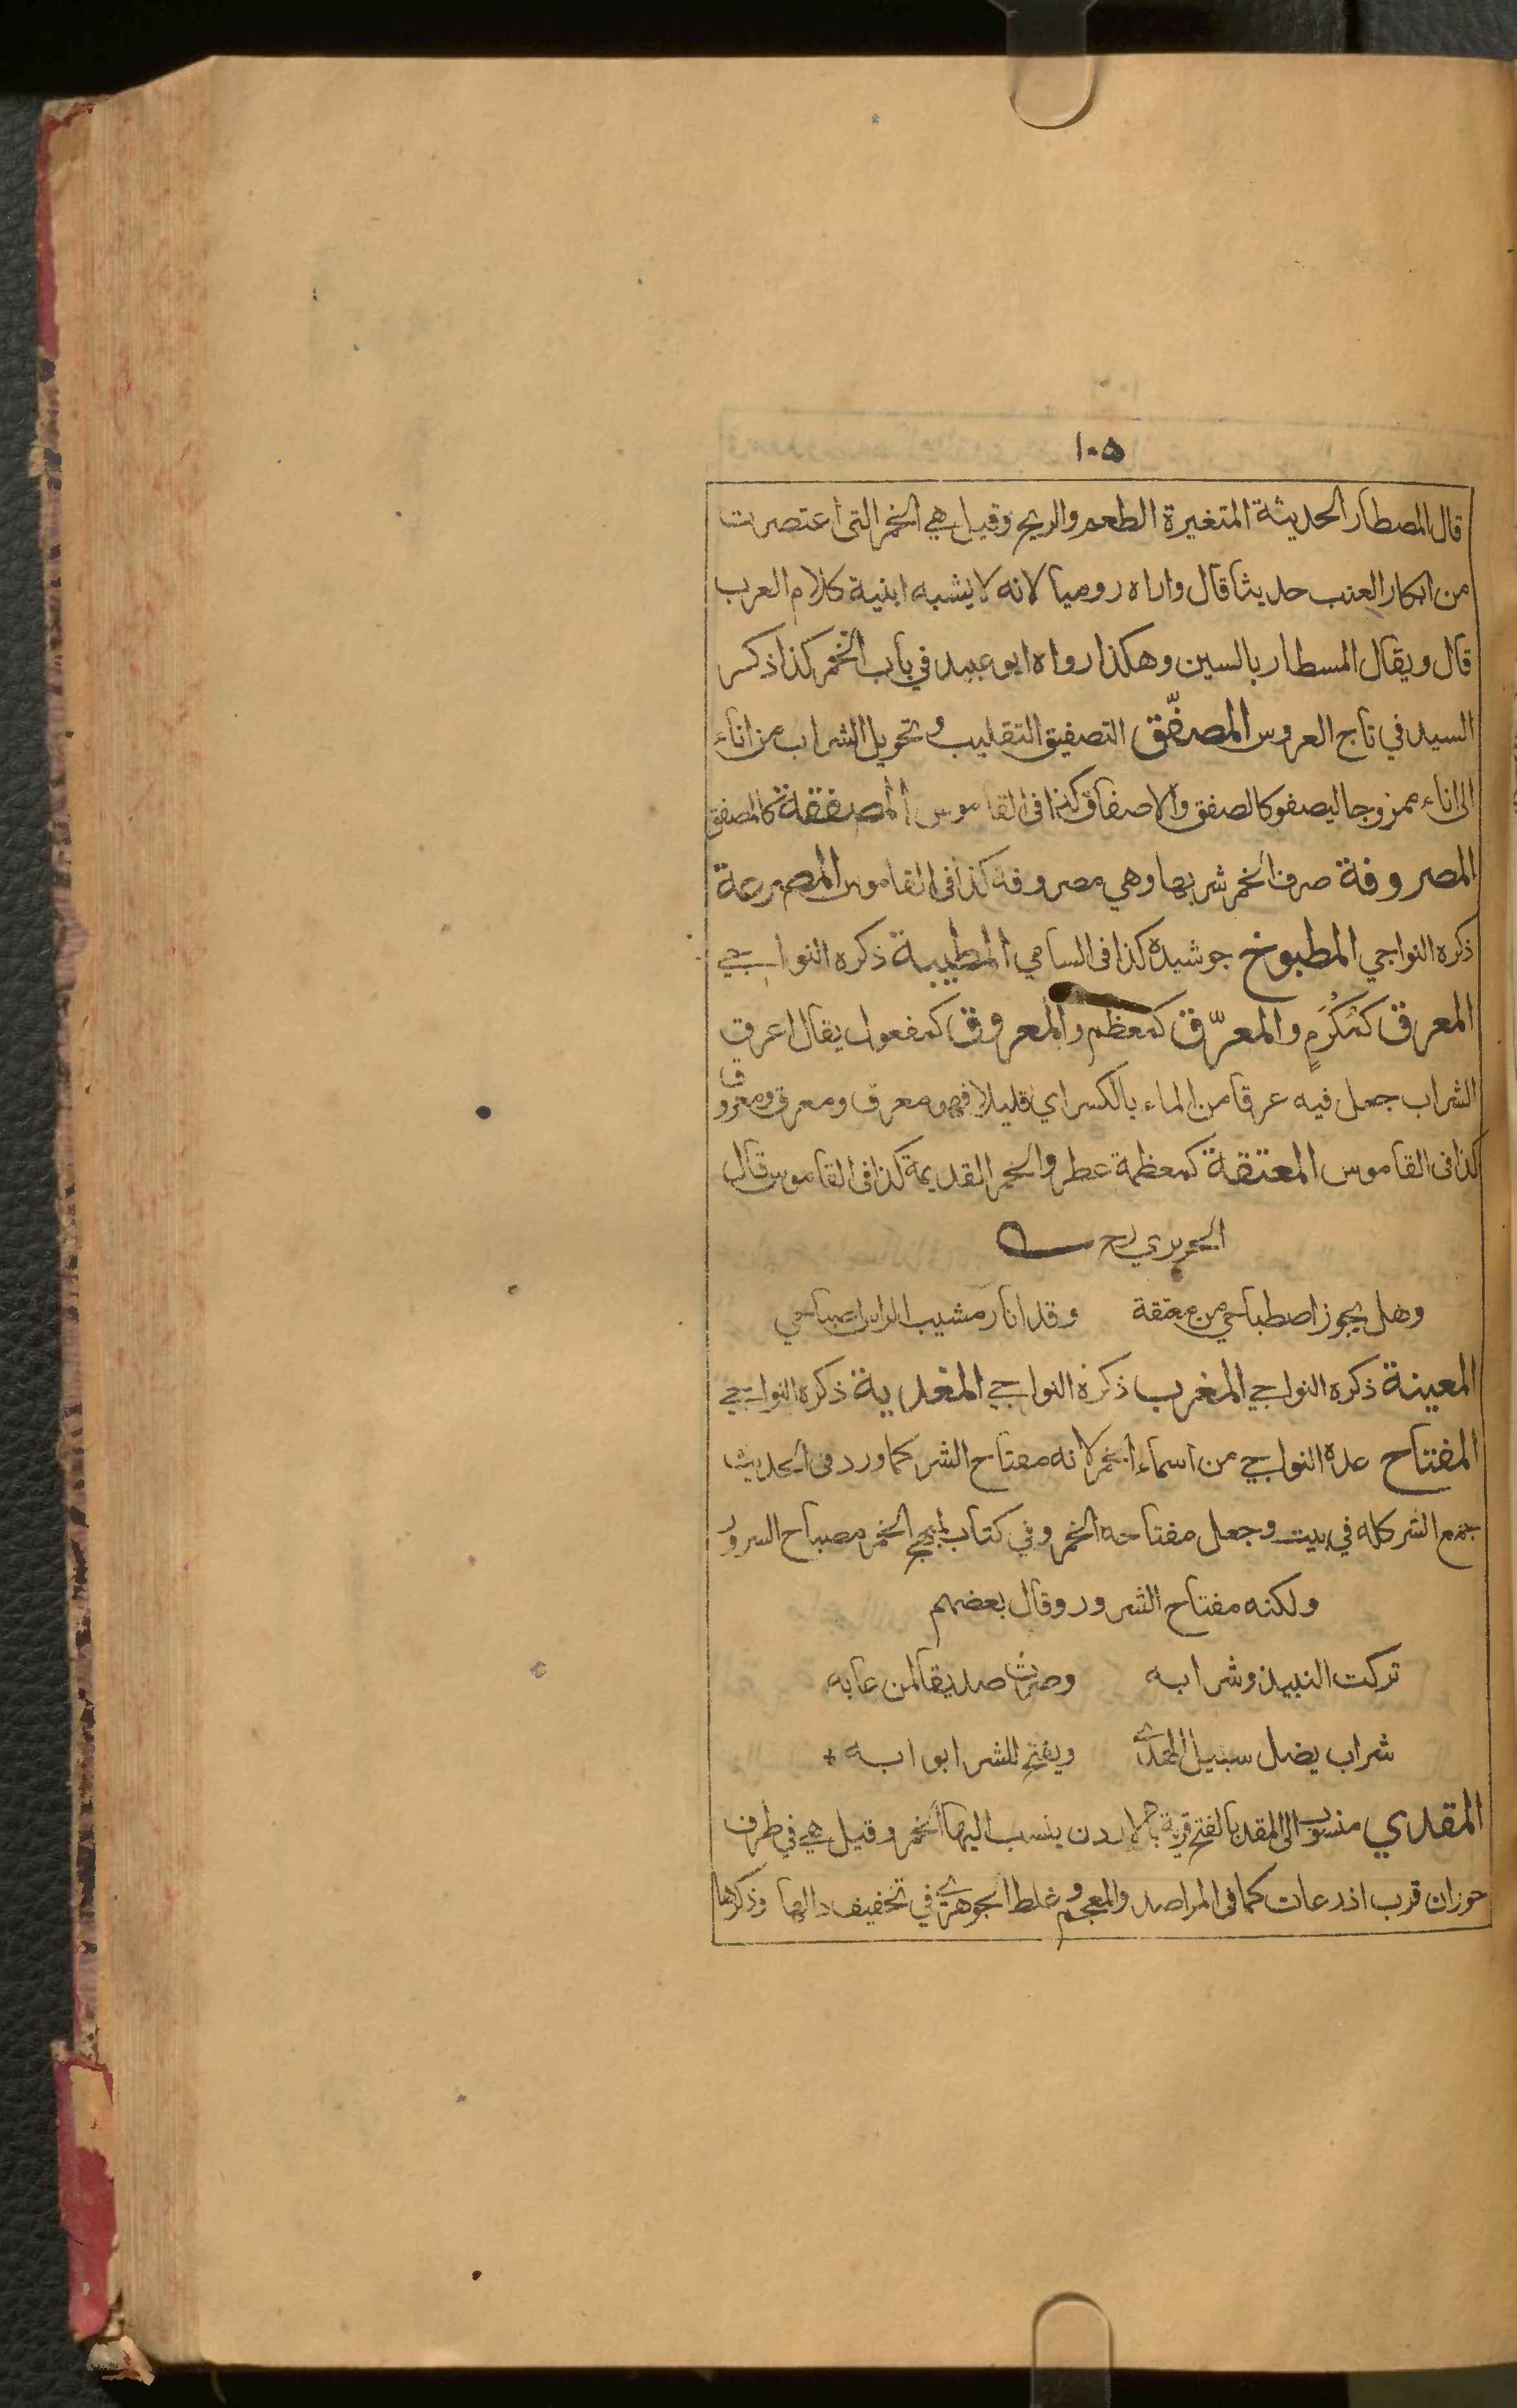 ١٠٥
قال المصطار الحديثة المتغيرة الطعم والريح وقيل هي الخمر التي اعتصرت
من ابكار العنب حديثا قال واراه روميا لانه لا يشبه ابنية كلام العرب
قال ويقال المسطار بالسين وهكذا رواه ابو عبيد في باب الخمر كذا ذكر
السيد في تاج العروس المصفّق التصفيق التقليب و تحويل الشراب من اناء
الى اناء ممزوجا ليصفو كالصفق والاصفاق كذا في القاموس المصفقة كالمصفق
المصروفة صرف الخمر شربها وهي مصروفة كذا في القاموس المصرعة
ذكره النواجي المطبوخ جوشيده كذا في السامي المطيبة ذكره النواجي
المعرق كمُكْرَمٍ والمعرّق كمعظم والمعروق كمفعول يقال اعرق
الشراب جعل فيه عرقا من الماء بالكسر اي قليلا فهو معرق ومعرق ومعروق
كذا في القاموس المعتقة كمعظمة عطر والخمر القديمة كذا في القاموس قال
الحريري رح
وهل يجوز اصطباحي من معتقة وقد انار مشيب الراس اصباحي
المعينة ذكره النواجي المغرب ذكره النواجي المغدية ذكره النواجي
المفتاح عده النواجي من اسماء الخمر لانه مفتاح الشر كما ورد في الحديث
جمع الشر كله في بيت وجعل مفتاحه الخمر وفي كتاب المبهج الخمر مصباح السرور
ولكنه مفتاح الشرور وقال بعضهم
تركت النبيذ وشرابه وصرت صديقا لمن عابه
شراب يضل سبيل الهدى ويفتح للشر ابوابه +
المقدي منسوب الى المقد بالفتح قرية بالاردن ينسب اليها الخمر وقيل هي في طرف
حوران قرب اذرعات كما في المراصد والمعجم و غلط الجوهري في تخفيف دالها وذكرها